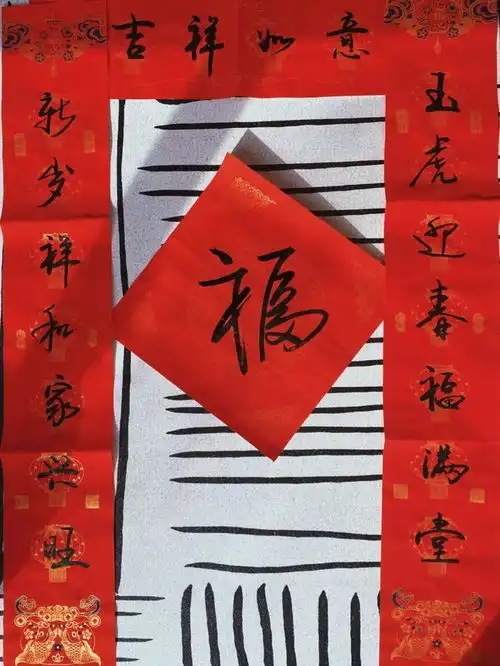 吉祥如意
玉虎迎春福满堂
新岁祥和家兴旺
福